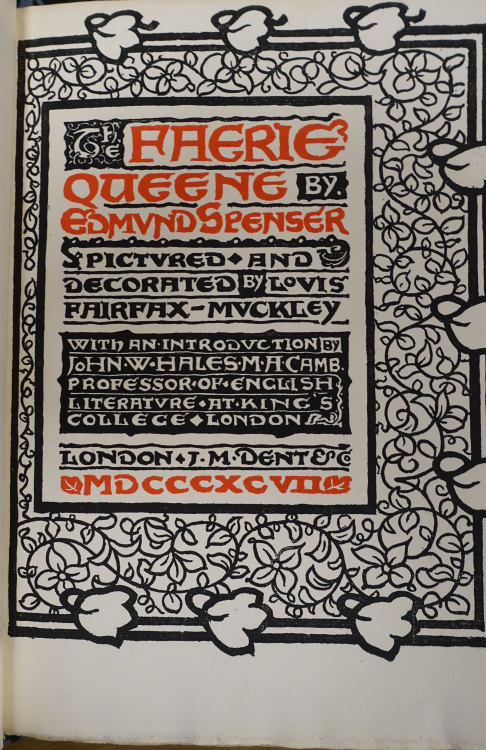 THE FAERIE
QUEENE BY.
EDMVND SPENSER
PICTVRED AND
DECORATED BY LOVIS
FAIRFAX-MVCKLEY
WITH AN INTRODVCTION BY
JOHN W HALES M A CAMB.
PROFESSOR OF ENGLISH
LITERATVRE AT KING'S
COLLEGE LONDON
LONDON J. M. DENT & Co
MDCCCXCVII